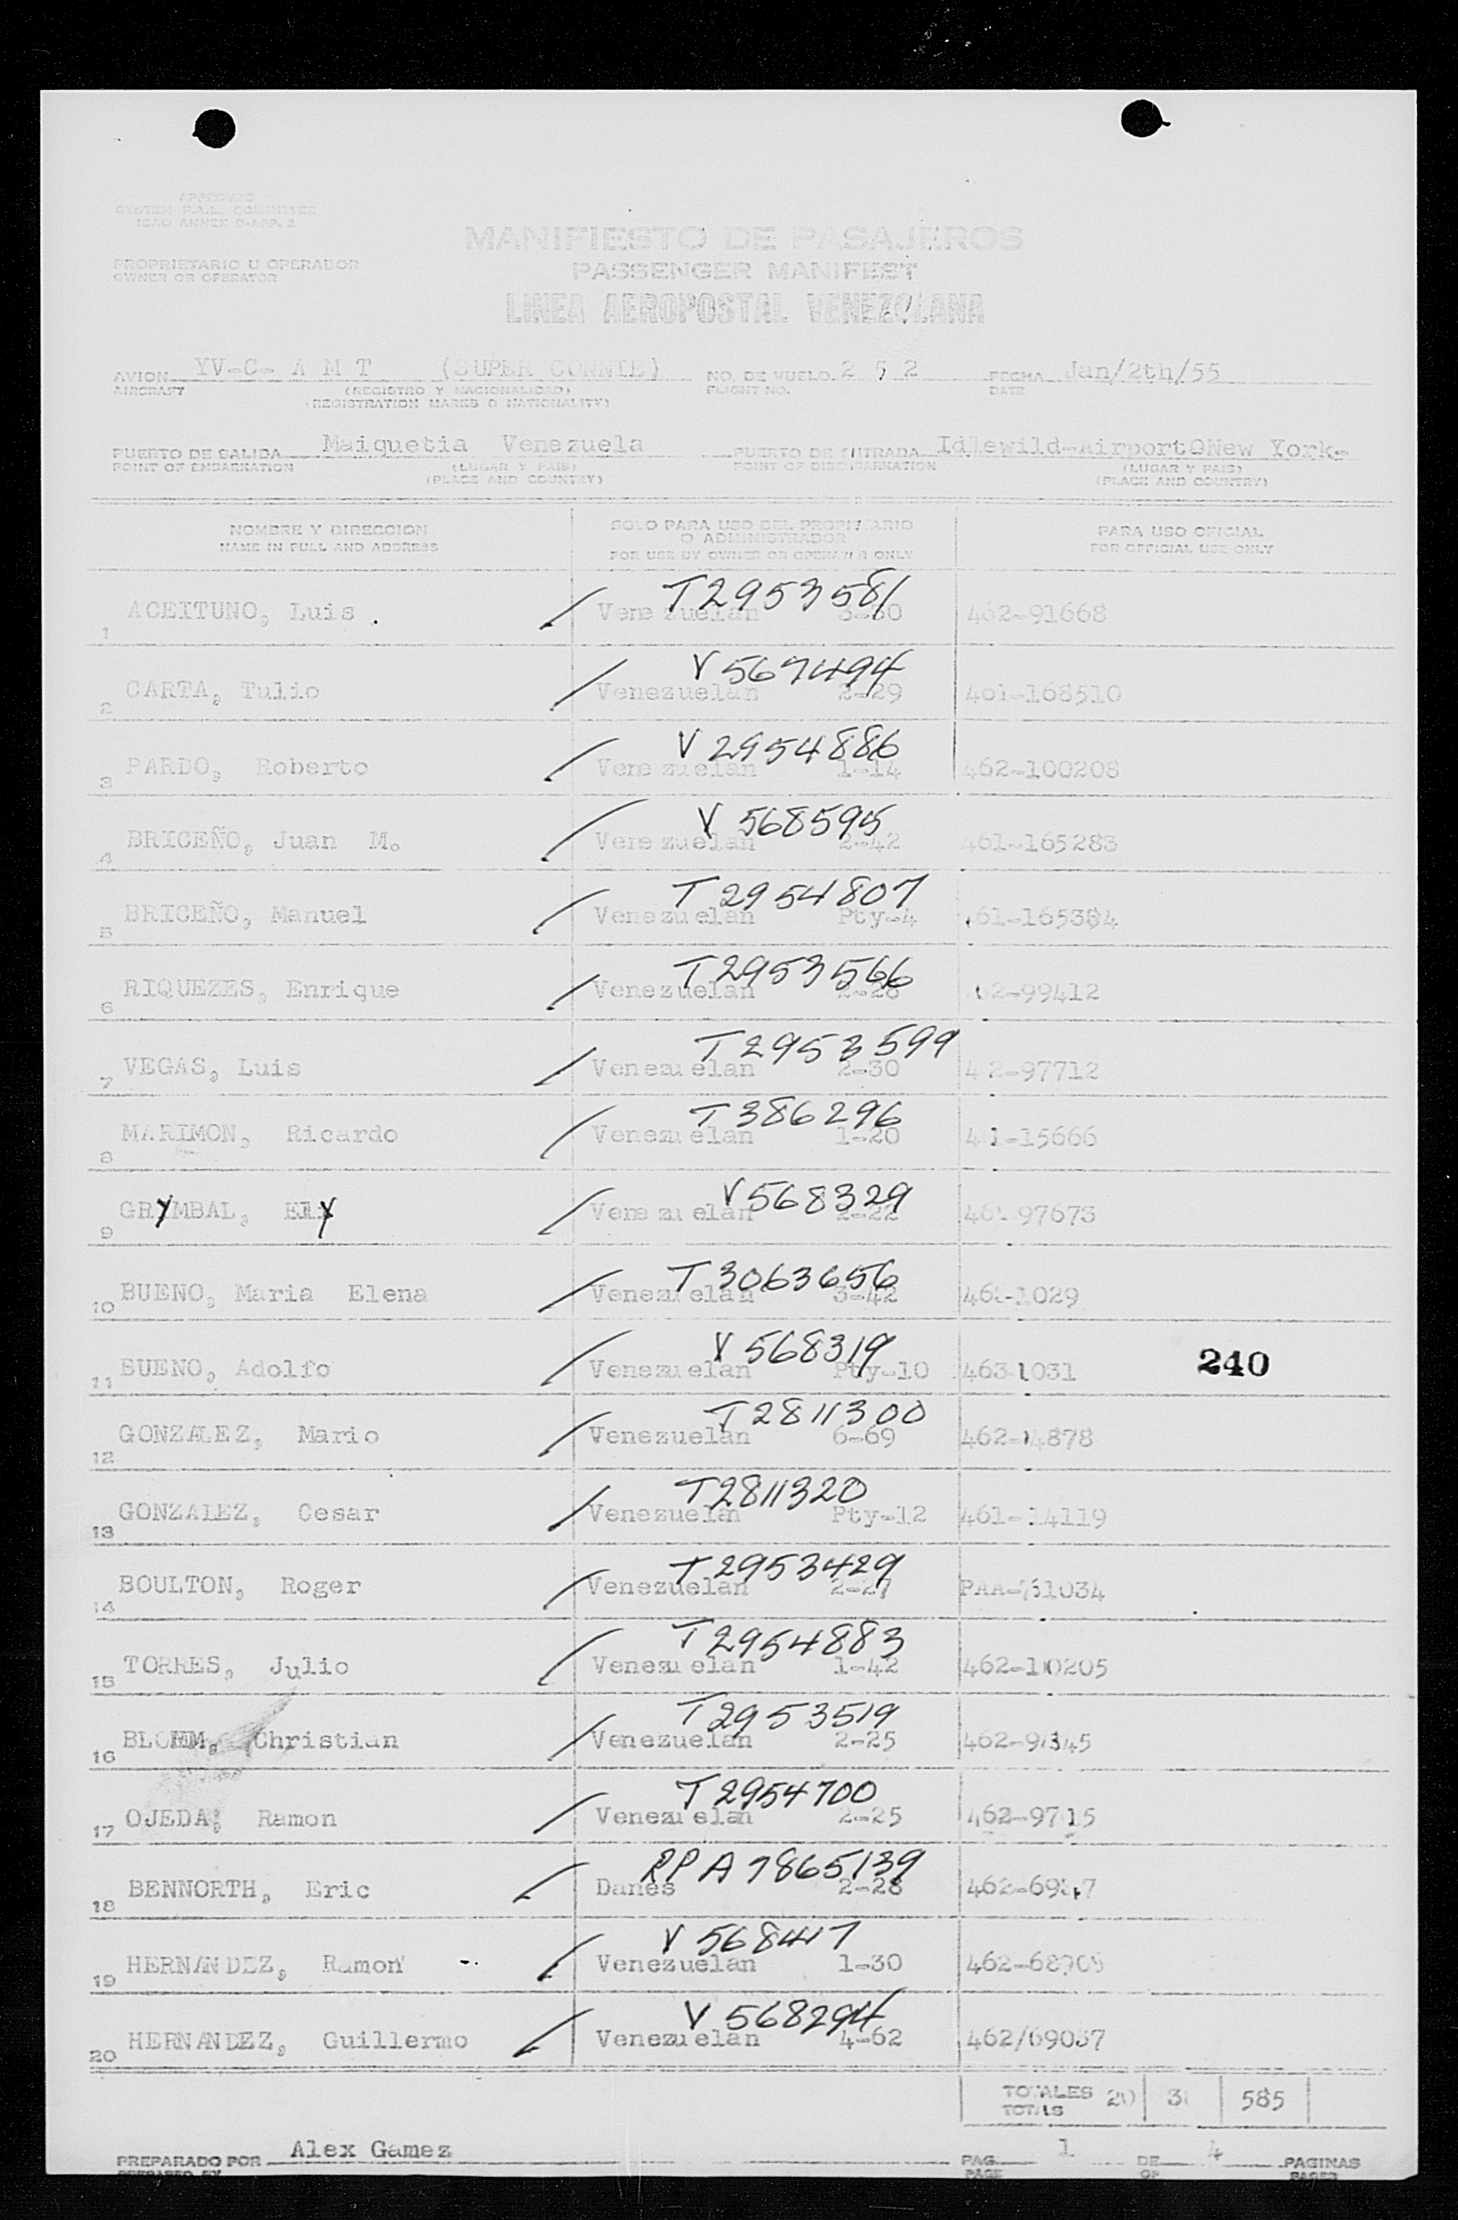 APPROVED
SYSTEM F.A.L. COMMITTEE
ICAO ANNEX 9-APP. 2
MANIFIESTO DE PASAJEROS
PASSENGER MANIFEST
LINEA AEROPOSTAL VENEZOLANA
PROPRIETARIO U OPERADOR
OWNER OR OPERATOR
AVION YV-C- A M T (SUPER CONNIE) NO. DE VUELO 2 5 2 FECHA Jan/2th/55
AIRCRAFT (REGISTRO Y NACIONALIDAD) FLIGHT NO. DATE
(REGISTRATION MARKS O NATIONALITY)
PUERTO DE SALIDA Maiquetia Venezuela PUERTO DE ENTRADA Idlewild-AirportONew York-
POINT OF EMBARKATION (LUGAR Y PAIS) POINT OF DISEMBARKATION (LUGAR Y PAIS)
(PLACE AND COUNTRY) (PLACE AND COUNTRY)
NOMBRE Y DIRECCION SOLO PARA USO DEL PROPIETARIO PARA USO OFICIAL
O ADMINISTRADOR
NAME IN FULL AND ADDRESS FOR USE BY OWNER OR OPERATOR ONLY FOR OFFICIAL USE ONLY
T2953581
1 ACEITUNO, Luis . Venezuelan 3-60 462-91668
V 5674494
2 CARTA, Tulio Venezuelan 2-29 461-168510
V 2954886
3 PARDO, Roberto Venezuelan 1-14 462-100208
V 568595
4 BRICEÑO, Juan M. Venezuelan 2-42 461-165283
T 2954807
5 BRICEÑO, Manuel Venezuelan Pty-4 61-165384
T2953566
6 RIQUEZES, Enrique Venezuelan 2-28 62-99412
T2953599
7 VEGAS, Luis Venezuelan 2-30 462-97712
T386296
8 MARIMON, Ricardo Venezuelan 1-20 461-15666
V568329
9 GRYMBAL, Ely Venezuelan 2-22 97673
T3063656
10 BUENO, Maria Elena Venezuelan 3-42 1029
V 568319
11 BUENO, Adolfo Venezuelan Pty-10 463-1031 240
T2811300
12 GONZALEZ, Mario Venezuelan 6-69 462-14878
T2811320
13 GONZALEZ, Cesar Venezuelan Pty-12 461-14119
T2953429
14 BOULTON, Roger Venezuelan 2-27 PAA-731034
T2954883
15 TORRES, Julio Venezuelan 1-42 462-100205
T2953519
16 BLOHM, Christian Venezuelan 2-25
T2954700
17 OJEDA, Ramon Venezuelan 2-25 462-9715
RPA7865139
18 BENNORTH, Eric Danes 2-28
V 568417
19 HERNANDEZ, Ramon Venezuelan 1-30 462-68909
V 568294
20 HERNANDEZ, Guillermo Venezuelan 4-62 462/69037
TOTALES 20 585
TOTALS
PREPARADO POR Alex Gamez PAG. 1 DE 4 PAGINAS
PREPARED BY PAGE OF PAGES